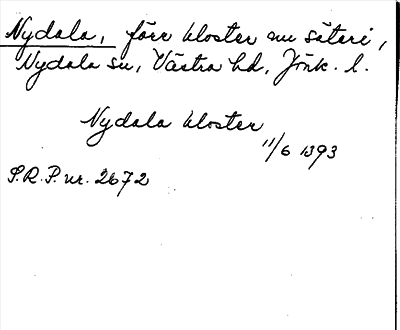 Nydala, förr kloster nu säteri,
Nydala sn, Västra hd, Jönk. l.
Nydala kloster
11/6 1393
S.R.P. nr. 2672